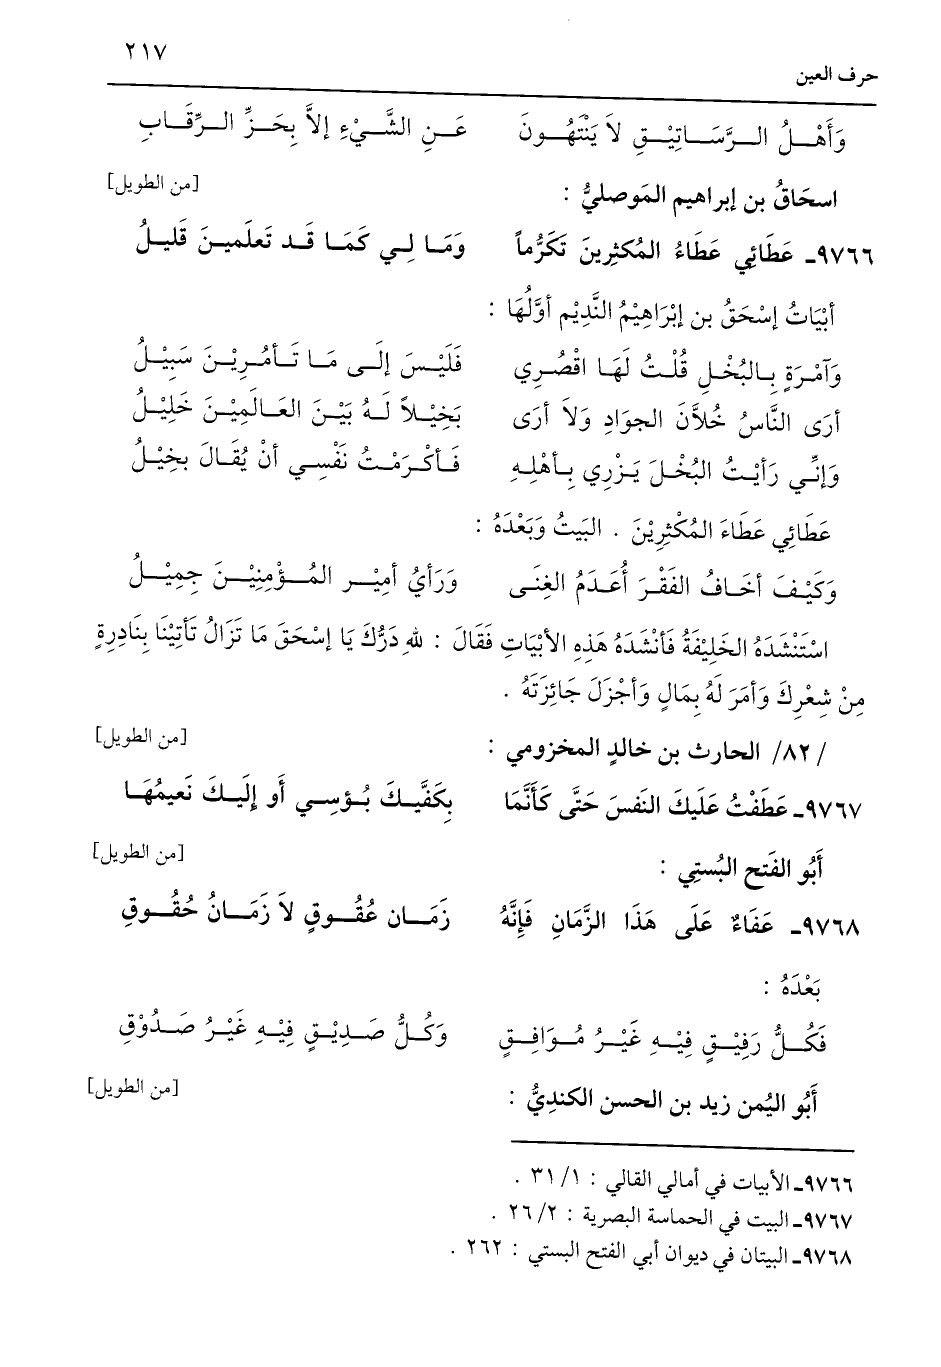 ٢١٧
حرف العين
وَأَهْلُ الرَّسَاتِيْقِ لاَ يَنْتَهُونَ عَنِ الشَّيْءِ إلاَّ بِحَزِّ الرِّقَابِ
اسحَاقُ بن إبراهيم المَوصليُّ : [من الطويل]
٩٧٦٦ـ عَطَائِي عَطَاءُ المُكثِرِينَ تَكَرُّماً وَمَا لِي كَمَا قَد تَعلَمينَ قَليلُ
أبْيَاتُ إسْحَقُ بن إبْرَاهِيْمُ النَّدِيْمِ أوَّلُهَا :
وَآمْرَةٍ بِالبُخْلِ قُلْتُ لَهَا اقْصُرِي فَلَيْسَ إلَى مَا تَأمُرِيْنَ سَبِيْلُ
أرَى النَّاسُ خُلاَّنَ الجوَادِ وَلاَ أرَى بَخِيْلاً لَهُ بَيْنَ العَالَمِيْنَ خَلِيْلُ
وَإنِّي رَأيْتُ البُخْلَ يَزْرِي بِأهْلِهِ فَأكْرَمْتُ نَفْسِي أنْ يُقَالَ بخِيْلُ
عَطَائِي عَطَاءَ المُكْثِرِيْنَ . البَيتُ وَبَعْدَهُ :
وَكَيْفَ أخَافُ الفَقْرَ أُعَدَمُ الغِنَى وَرَأيُ أمِيْر المُؤْمِنِيْنَ جَمِيْلُ
اسْتَنْشَدَهُ الخَلِيْفَةُ فَأنْشَدَهُ هَذِهِ الأبْيَاتِ فَقَالَ : للهِ دَرُّكَ يَا إسْحَقَ مَا تَزَالُ تَأتِيْنَا بِنَادِرِةٍ
مِنْ شِعْرِكَ وَأمَرَ لَهُ بِمَالٍ وَأجْزَلَ جَائِزَتَهُ .
/ ٨٢/ الحارث بن خالدٍ المخزومي : [من الطويل]
٩٧٦٧ـ عَطَفْتُ عَلَيكَ النَفسَ حَتَّى كَأَنَّمَا بِكَفَّيكَ بُؤسِي أَو إِلَيكَ نَعيمُهَا
أَبُو الفَتح البُستِي : [من الطويل]
٩٧٦٨ـ عَفَاءٌ عَلَى هَذَا الزَّمَانِ فَإِنَّهُ زَمَان عُقُوقٍ لاَ زَمَانُ حُقُوقِ
بَعْدَهُ :
فَكُلُّ رَفِيْقٍ فِيْهِ غَيْرُ مُوَافِقٍ وَكُلُّ صَدِيْقٍ فِيْهِ غَيْرُ صَدُوْقِ
أَبُو اليُمن زيد بن الحسن الكنديُّ : [من الطويل]
٩٧٦٦ـ الأبيات في أمالي القالي : ١/ ٣١ .
٩٧٦٧ـ البيت في الحماسة البصرية : ٢/ ٢٦ .
٩٧٦٨ـ البيتان في ديوان أبي الفتح البستي : ٢٦٢ .